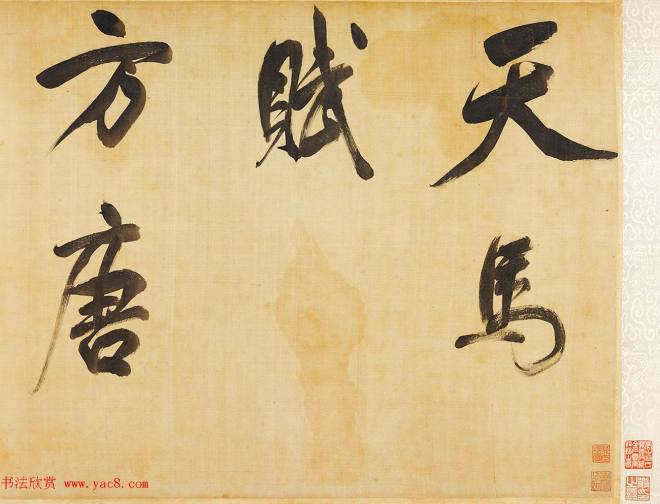 天馬
賦
方唐
书法欣赏 www.yac8.com